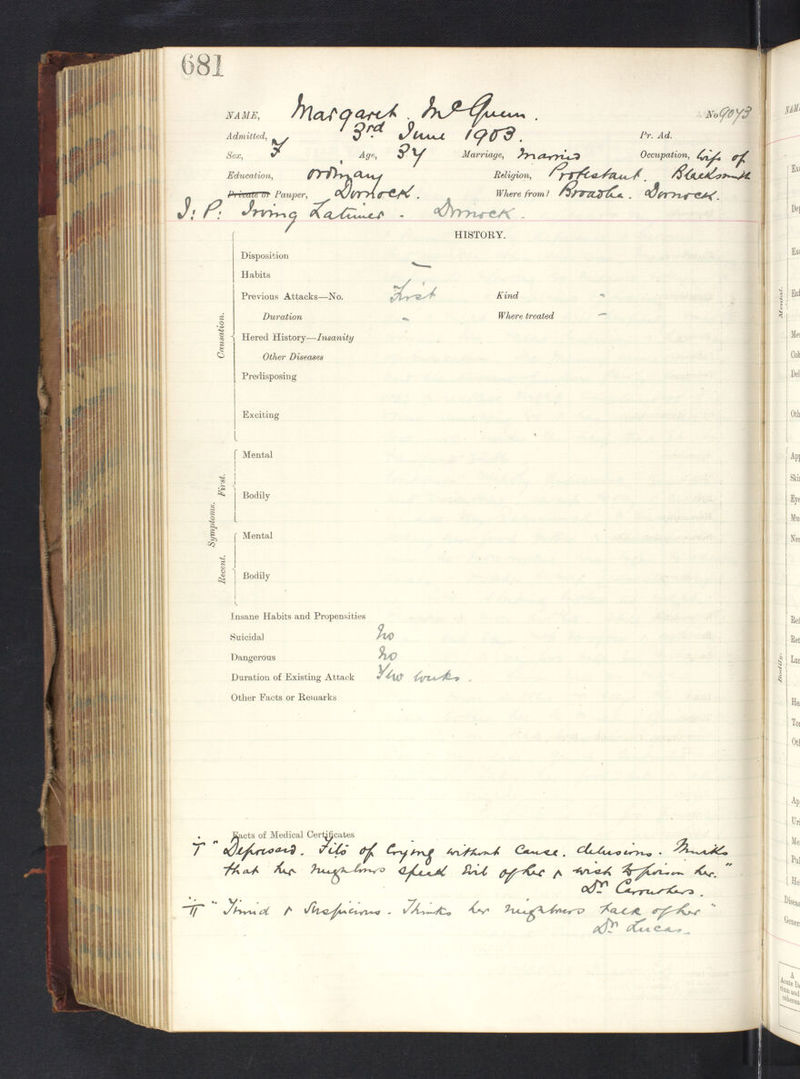 681
NAME, Margaret McQueen. No 9073
Admitted, 3rd June 1903. Pr. Ad.
Sex, F Age, 34 Marriage, Married Occupation, Wife of
Education, ordinary Religion, Protestant. Blacksmith
Private or Pauper, Dornock. Where from? Dornock.
I: P: Irving Latimer. Dornock.
HISTORY.
Causation.
Disposition
Habits —
Previous Attacks—No. First Kind "
Duration " Where treated —
Hered History—Insanity
Other Diseases
Predisposing
Exciting
Symptoms. First.
Mental
Bodily
Recent.
Mental
Bodily
Insane Habits and Propensities
Suicidal No
Dangerous No
Duration of Existing Attack Few weeks.
Other Facts or Remarks
Facts of Medical Certificates
I "Depressed. Fits of Crying without Cause. delusions. Thinks
that her neighbours speak evil of her & wish to poison her."
Dr Carruthers.
II "Timid & Suspicious. Thinks her neighbours talk of her"
Dr Lucas.